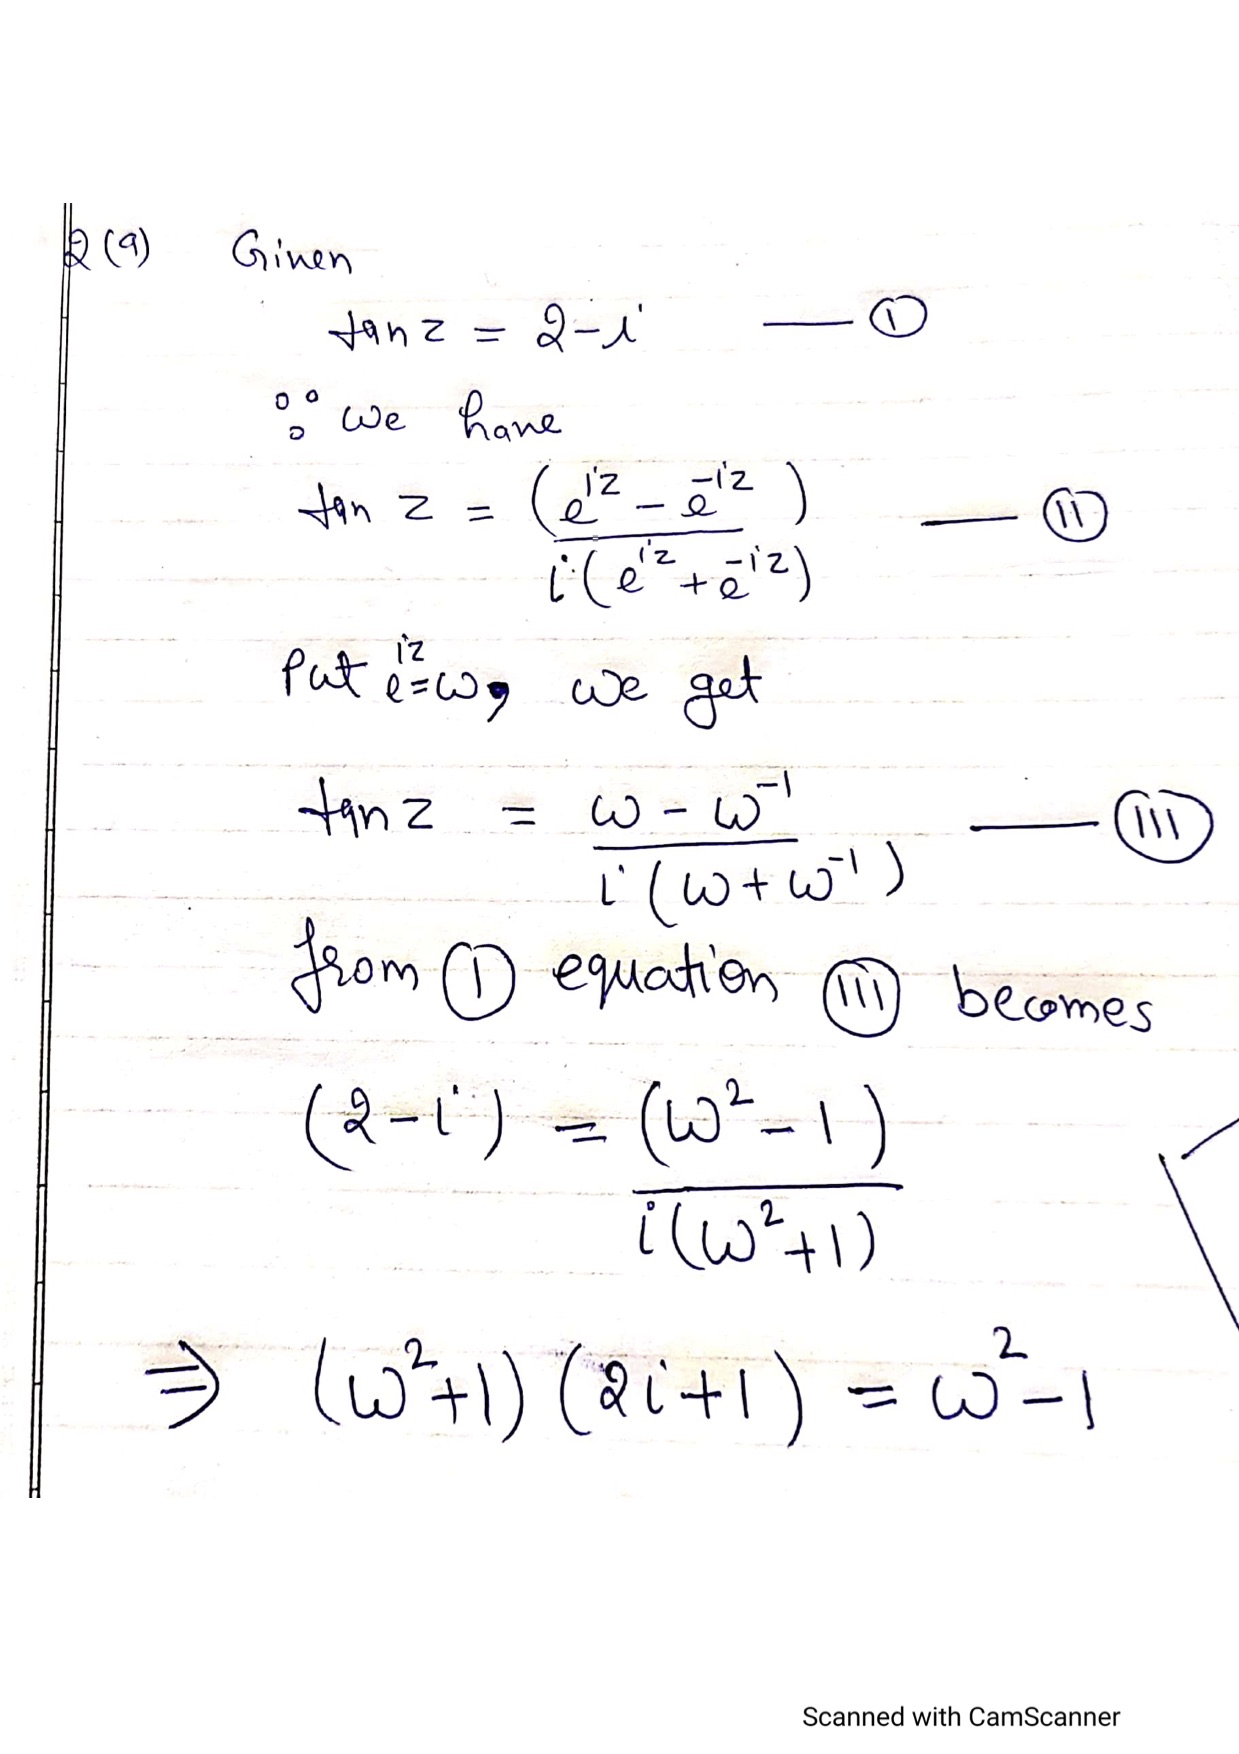 2(a) Given
tan z = 2-i — (I)
∵ we have
tan z = (e^{iz} - e^{-iz}) / i(e^{iz} + e^{-iz}) — (II)
Put e^{iz} = ω, we get
tan z = ω - ω^{-1} / i(ω + ω^{-1}) — (III)
from (I) equation (III) becomes
(2-i) = (ω² - 1) / i(ω² + 1)
⇒ (ω²+1) (2i+1) = ω² - 1
Scanned with CamScanner